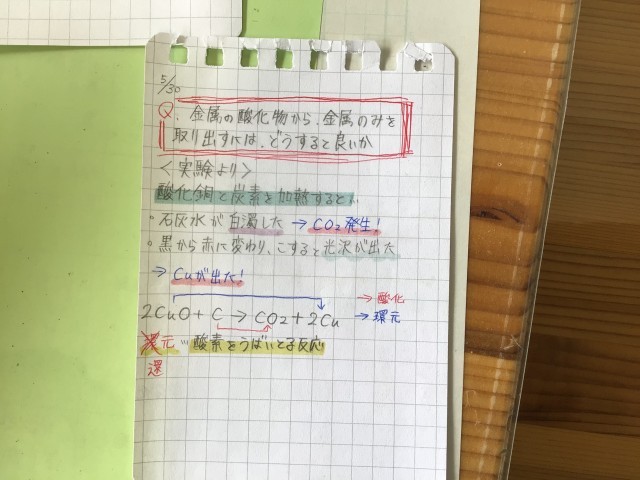 5/30
Q. 金属の酸化物から、金属のみを
取り出すには、どうすると良いか
<実験より>
酸化銅と炭素を加熱すると、
・石灰水が白濁した → CO₂発生!
・黒から赤に変わり、こすると光沢が出た
→ Cuが出た!
2CuO + C → CO₂ + 2Cu
→ 酸化
→ 環元
還元
… 酸素をうばいとる反応
還